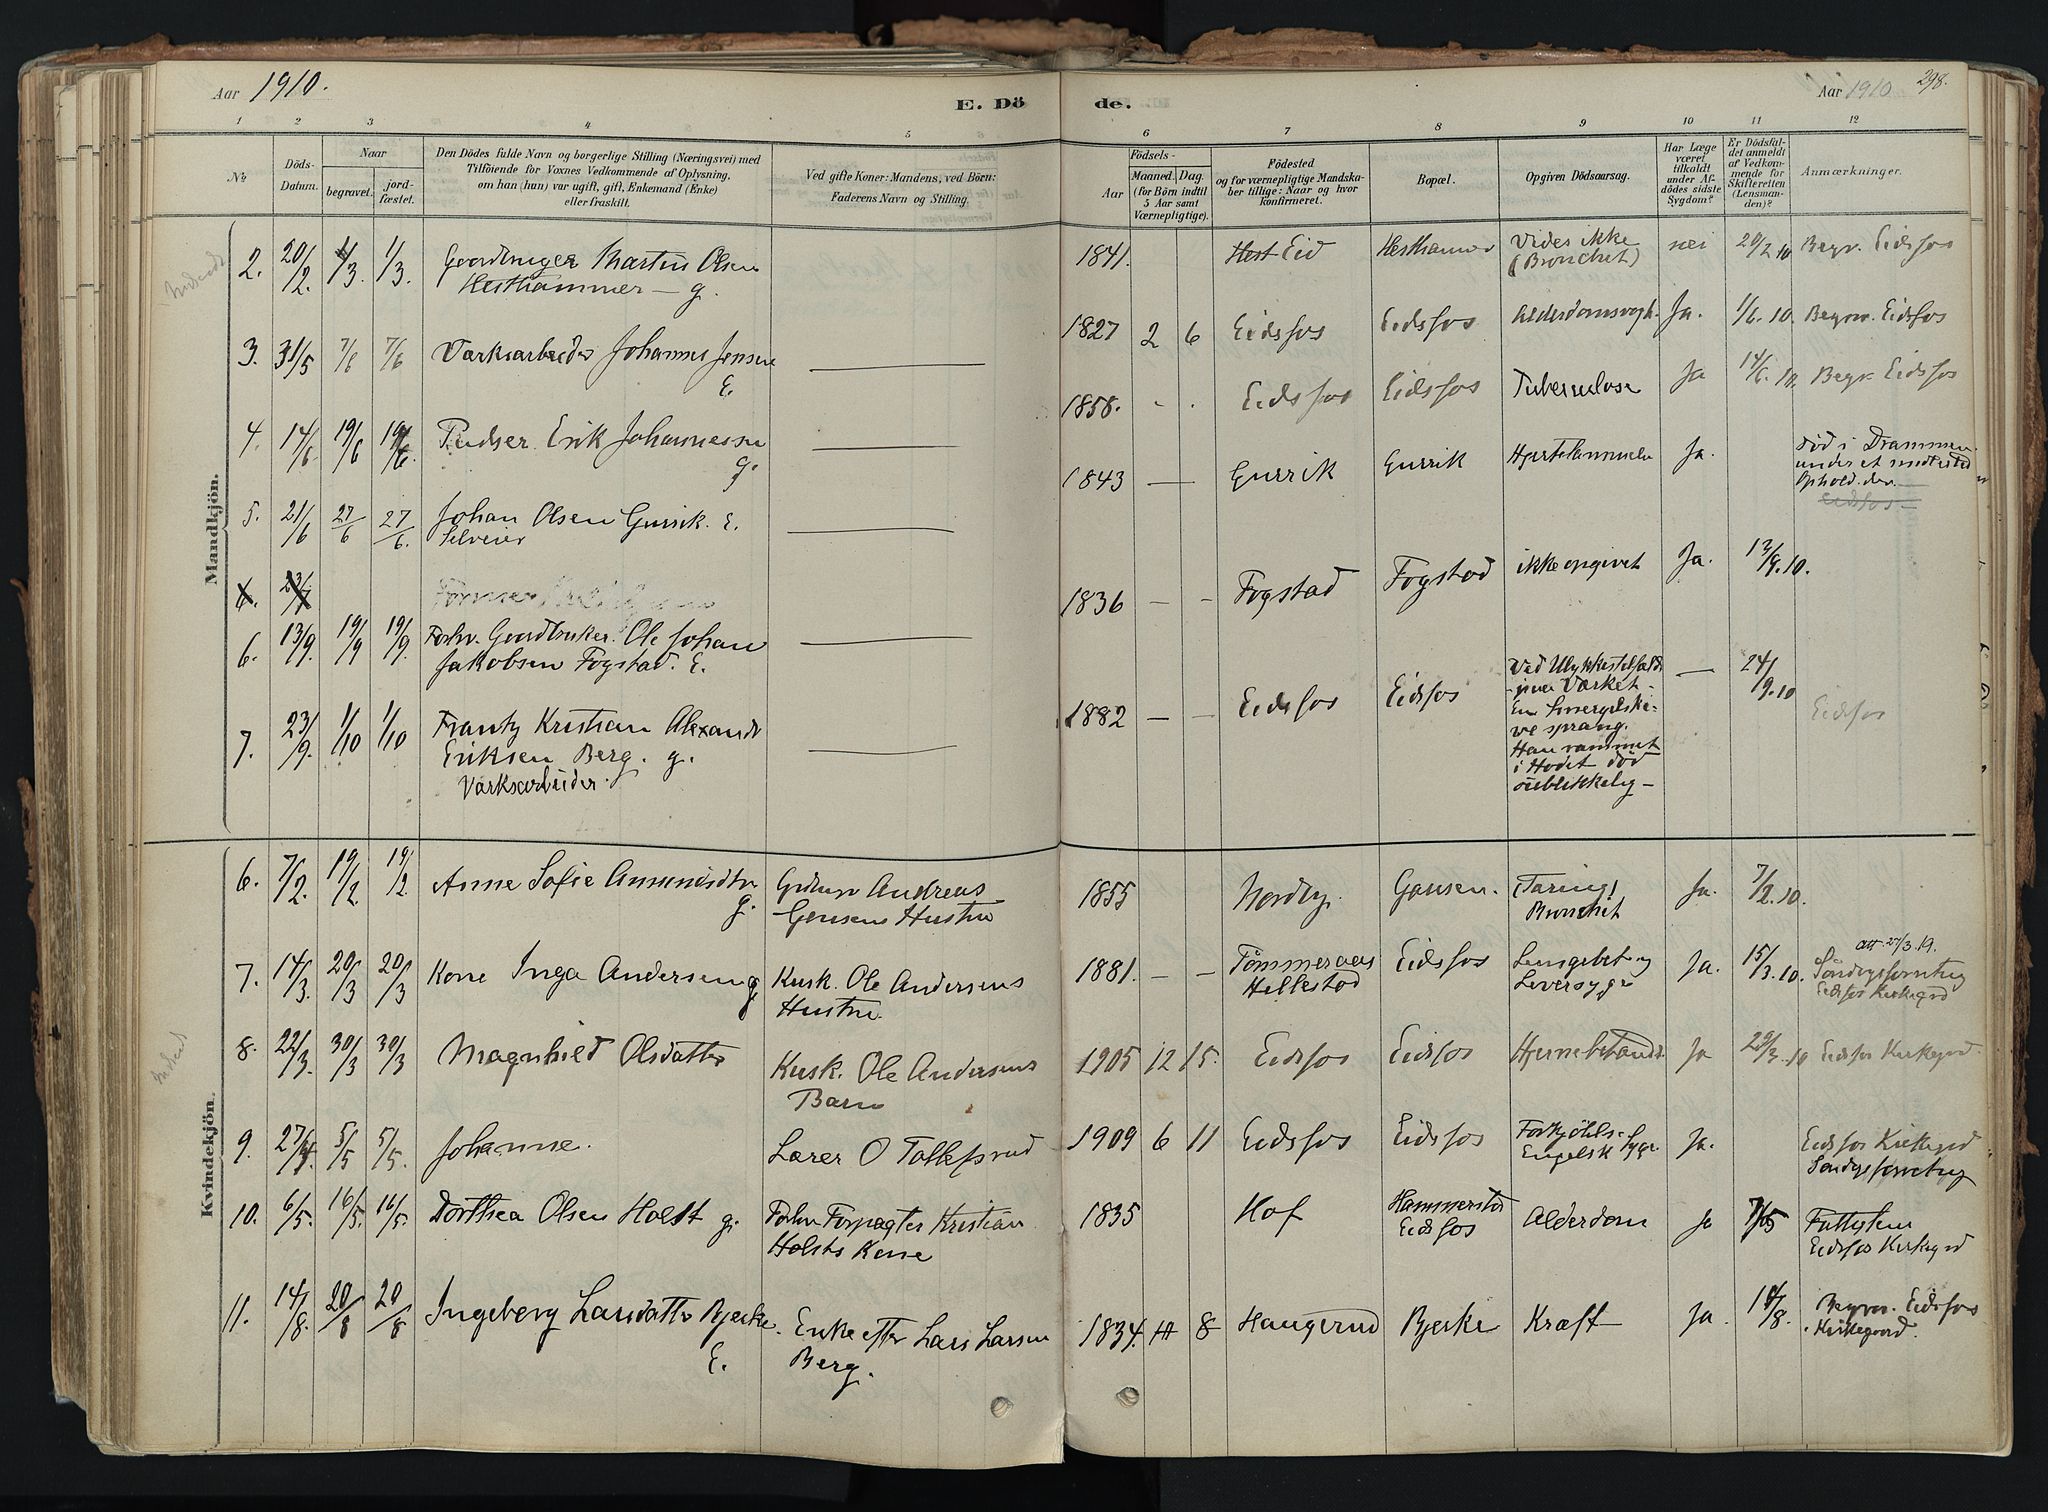 Aar 1910.
E. Dö
1 2 3 4 5
№
Döds-
Datum.
Naar
begravet.
jord-
fæstet.
Den Dödes fulde Navn og borgerlige Stilling (Næringsvei) med
Tilföiende for Voxnes Vedkommende af Oplysning,
om han (hun) var ugift, gift, Enkemand (Enke)
eller fraskilt.
Ved gifte Koner: Mandens, ved Börn:
Faderens Navn og Stilling.
Mandkjön.
2. 20/2. 1/3. 1/3. Gaardbruger Martin Olsen
Hesthammer — g.
3. 31/5 7/6 7/6 Værksarbeider Johannes Jensen
E.
4. 14/6. 19/6 19/6. Pudser Erik Johannessen
g.
5. 21/6 27/6 27/6. Johan Olsen Gurrik. E.
Selveier
6. 23/7
6. 13/9. 19/9 19/9. Forhv. Gaardbruker. Ole Johan
Jakobsen Fogstad. E.
7. 23/9. 1/10 1/10 Frantz Kristian Alexander
Eriksen Berg. g.
Værksarbeider.
Kvindekjön.
6. 7/2. 19/2. 19/2 Anne Sofie Amundsdtr
g. Andreas
Gousens Hustru
7. 14/3. 20/3 20/3 Kone Inga Andersen g. Kusk. Ole Andersens
Hustru.
8. 22/3. 30/3 30/3 Magnhild Olsdatter
Kusk. Ole Andersens
Barn
9. 27/4. 5/5 5/5. Johanne. Lærer O Tollefsrud
10. 6/5. 16/5. 16/5. Dorthea Olsen Holst g. Forhv Forpagter Kristian
Holsts Kone
11. 14/8. 20/8 20/8 Ingeborg Larsdatter Bjerke.
E. Enke efter Lars Larsen
Berg.
de.
Aar 1910 298.
6 7 8 9 10 11 12
Födsels-
Aar
Maaned. Dag.
(for Börn indtil
5 Aar samt
Værnepligtige).
Födested
og for værnepligtige Mandska-
ber tillige: Naar og hvor
konfirmeret.
Bopæl.
Opgiven Dödsaarsag.
Har Læge
været
tilkaldt
under Af-
dödes sidste
Sygdom?
Er Dödsfal-
det anmeldt
af Vedkom-
mende for
Skifteretten
(Lensman-
den)?
Anmærkninger.
1841. Hest Eid Hesthammer Vides ikke
(Bronchit) nei 20/2 10 Begr. Eidsfos
1827 2 6 Eidsfos Eidsfos Alderdomssvagh. Ja. 1/6. 10. Begrav. Eidsfos
1858. - . Eidsfos Eidsfos Tuberculose Ja 14/6. 10. Begr. Eidsfos
1843 — Gurrik Gurrik Hjertelammelse Ja. Död i Drammen
under et midlertid
Ophold der.
Eidsfos
1836 — — Fogstad Fogstad ikke opgivet Ja. 13/9. 10.
1882 — — Eidsfos Eidsfos Ved Ulykkestilfælde
paa Værket —
En Smergelski-
ve sprang.
Han rammet
i Hodet död
öieblikkelig — — 24/9. 10 Eidsfos
1855 Nordby. Gousen. (Tæring)
Bronchit Ja. 7/2. 10.
1881. — — Tömmeraas
Hillestad Eidsfos Lungebet og
Leversyge Ja. 15/3. 10. att. 27/3. 19.
Sördagsforretng
Eidsfos Kirkegrd
1905 12 15. Eidsfos Eidsfos Hjernebetænds. Ja 29/3. 10 Eidsfos Kirkegrd.
1909 6 11 Eidsfos Eidsfos Forkjölelse
Engelsk Syge. Ja. Eidsfos Kirkegrd
1835 Hof Hammerstad
Eidsfos Alderdom Ja 7/5
Eidsfos Kirkegrd
1834. 8 Haugerud Bjerke Kræft Ja. Begrav. Eidsfos
Kirkegaard.